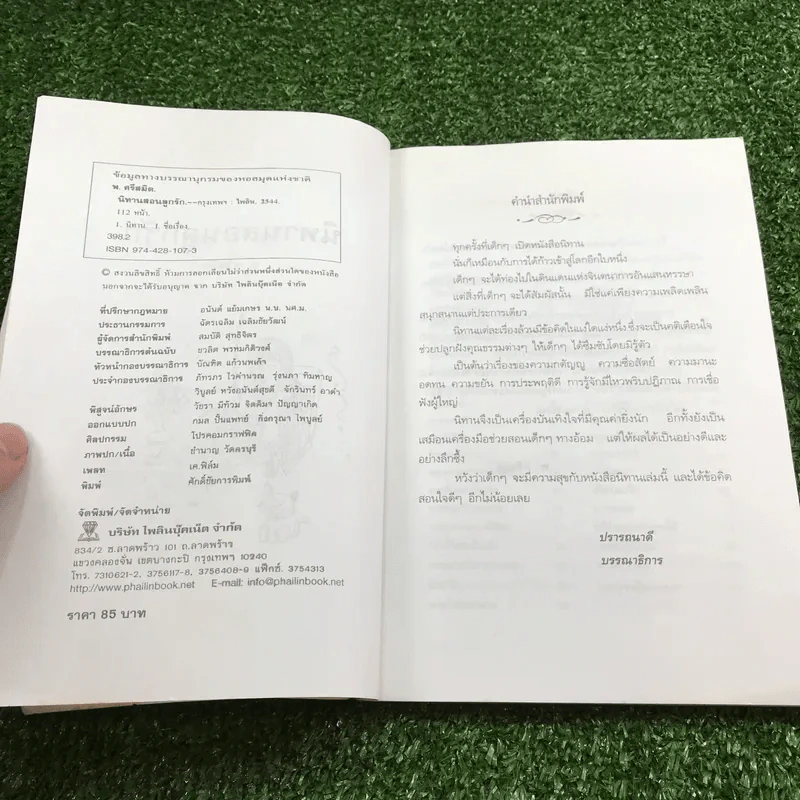 ข้อมูลทางบรรณานุกรมของหอสมุดแห่งชาติ
พ. ศรีสมิต.
นิทานสอนลูกรัก.--กรุงเทพฯ : ไพลิน, 2544.
112 หน้า.
1. นิทาน. I. ชื่อเรื่อง.
398.2
ISBN 974-428-107-3
© สงวนลิขสิทธิ์ ห้ามการลอกเลียนไม่ว่าส่วนหนึ่งส่วนใดของหนังสือ
นอกจากจะได้รับอนุญาต จาก บริษัท ไพลินบุ๊คเน็ต จำกัด
ที่ปรึกษากฎหมาย อนันต์ แย้มเกษร น.บ. นศ.ม.
ประธานกรรมการ ฉัตรเฉลิม เฉลิมชัยวัฒน์
ผู้จัดการสำนักพิมพ์ สมบัติ สุทธิจิตร
บรรณาธิการต้นฉบับ ชวลิต พรหมกิติวงค์
หัวหน้ากองบรรณาธิการ บัณฑิต แก้วพเค้า
ประจำกองบรรณาธิการ ภัทวภร ไวคำนวณ รุ่งนภา ทิมหาญ
วิบูลย์ หวังอนันต์สุขดี จักรินทร์ อาดำ
พิสูจน์อักษร วัชรา มีท้วม จิตติมา ปัญญาเกิด
ออกแบบปก กมล ปิ่นแพทย์ กิ่งกรุณา ไพบูลย์
ศิลปกรรม โปรคอมกราฟฟิค
ภาพปก/เนื้อ ชำนาญ วัดครบุรี
เพลท เค.ฟิล์ม
พิมพ์ ศักดิ์ชัยการพิมพ์
จัดพิมพ์/จัดจำหน่าย
บริษัท ไพลินบุ๊คเน็ต จำกัด
834/2 ซ.ลาดพร้าว 101 ถ.ลาดพร้าว
แขวงคลองจั่น เขตบางกะปิ กรุงเทพฯ 10240
โทร. 7310621-2, 3756117-8, 3756408-9 แฟ๊กซ์. 3754313
http://www.phailinbook.net E-mall: info@phailinbook.net
ราคา 85 บาท
คำนำสำนักพิมพ์
ทุกครั้งที่เด็กๆ เปิดหนังสือนิทาน
นั่นก็เหมือนกับการได้ก้าวเข้าสู่โลกอีกใบหนึ่ง
เด็กๆ จะได้ท่องไปในดินแดนแห่งจินตนาการอันแสนหรรษา
แต่สิ่งที่เด็กๆ จะได้สัมผัสนั้น มิใช่แค่เพียงความเพลิดเพลิน
สนุกสนานแต่ประการเดียว
นิทานแต่ละเรื่องล้วนมีข้อคิดในแง่ใดแง่หนึ่ง ซึ่งจะเป็นคติเตือนใจ
ช่วยปลูกฝังคุณธรรมต่างๆ ให้เด็กๆ ได้ซึมซับโดยมิรู้ตัว
เป็นต้นว่าเรื่องของความกตัญญู ความซื่อสัตย์ ความมานะ
อดทน ความขยัน การประพฤติดี การรู้จักมีไหวพริบปฏิภาณ การเชื่อ
ฟังผู้ใหญ่
นิทานจึงเป็นเครื่องบันเทิงใจที่มีคุณค่ายิ่งนัก อีกทั้งยังเป็น
เสมือนเครื่องมือช่วยสอนเด็กๆ ทางอ้อม แต่ให้ผลได้เป็นอย่างดีและ
อย่างลึกซึ้ง
หวังว่าเด็กๆ จะมีความสุขกับหนังสือนิทานเล่มนี้ และได้ข้อคิด
สอนใจดีๆ อีกไม่น้อยเลย
ปรารถนาดี
บรรณาธิการ